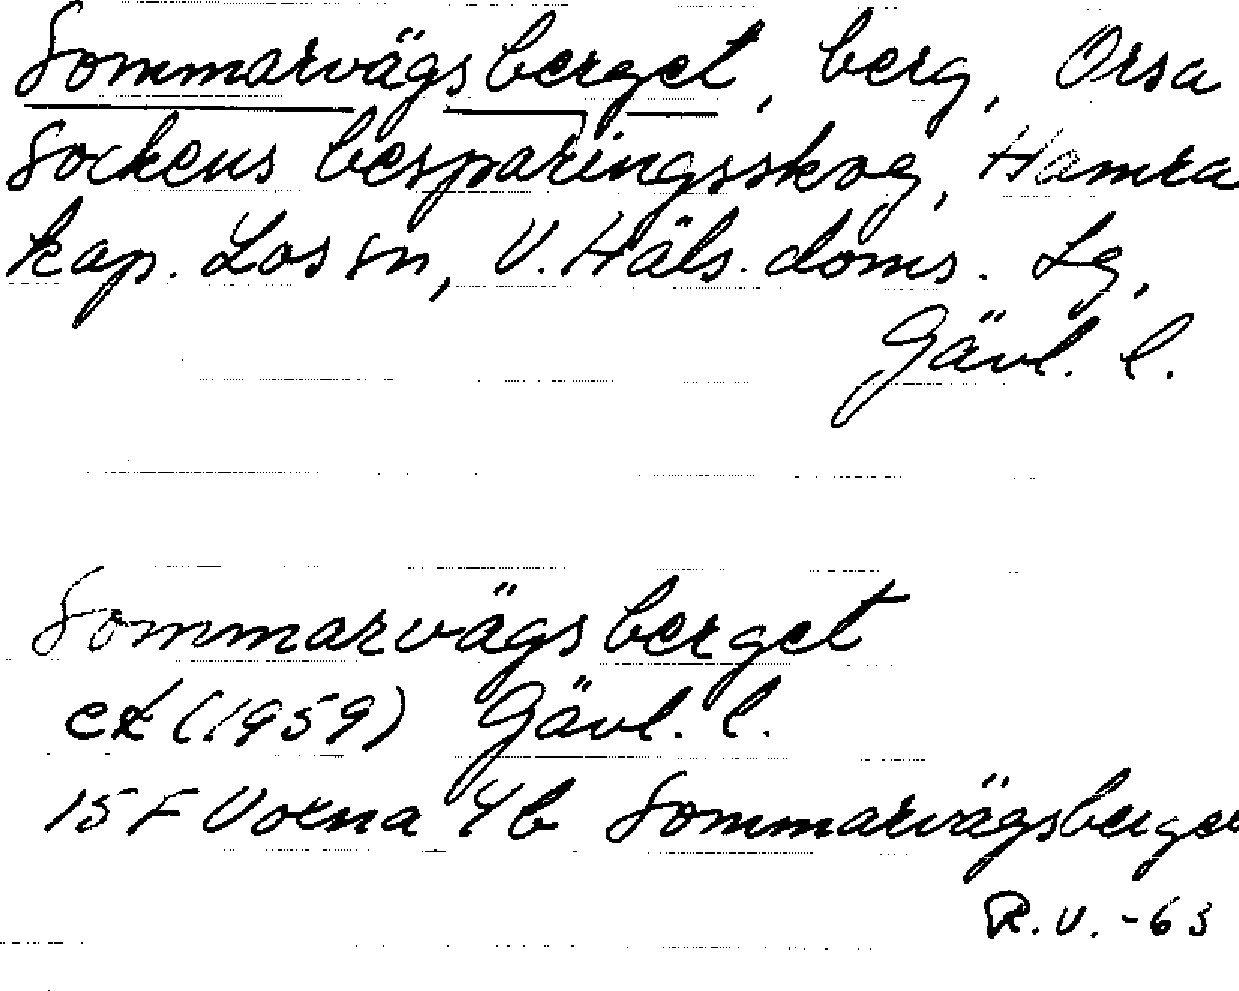 Sommarvägsberget, berg, Orsa
Sockens besparingsskog, Hamra
kap. Los sn, V. Häls. doms. Lg,
Gävl. l.
Sommarvägsberget
ek (1959) Gävl. l.
15 F Voxna 4b Sommarvägsberget
R.V. -63